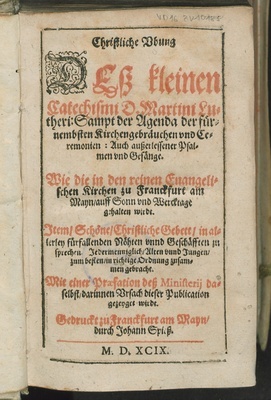 Christliche Vbung
Deß kleinen
Catechismi D. Martini Lu-
theri: Sampt der Agenda der für-
nembsten Kirchengebräuchen vnd Ce-
remonien: Auch außerlesener Psal-
men vnd Gesänge.
Wie die in den reinen Evangeli-
schen Kirchen zu Franckfurt am
Mayn/ auff Sonn vnd Wercktage
gehalten wirdt.
Item/ Schöne/ Christliche Gebett/ in al-
lerley fürfallenden Nöhten vnnd Geschäfften zu
sprechen. Jedermenniglich/ Alten vnnd Jungen/
zum besten/ in richtige Ordnung zusam-
men gebracht.
Mit einer Præfation deß Ministerij da-
selbst/ darinnen Vrsach dieser Publication
gezeyget wirdt.
Gedruckt zu Franckfurt am Mayn/
durch Johann Spieß.
M. D. XCIX.